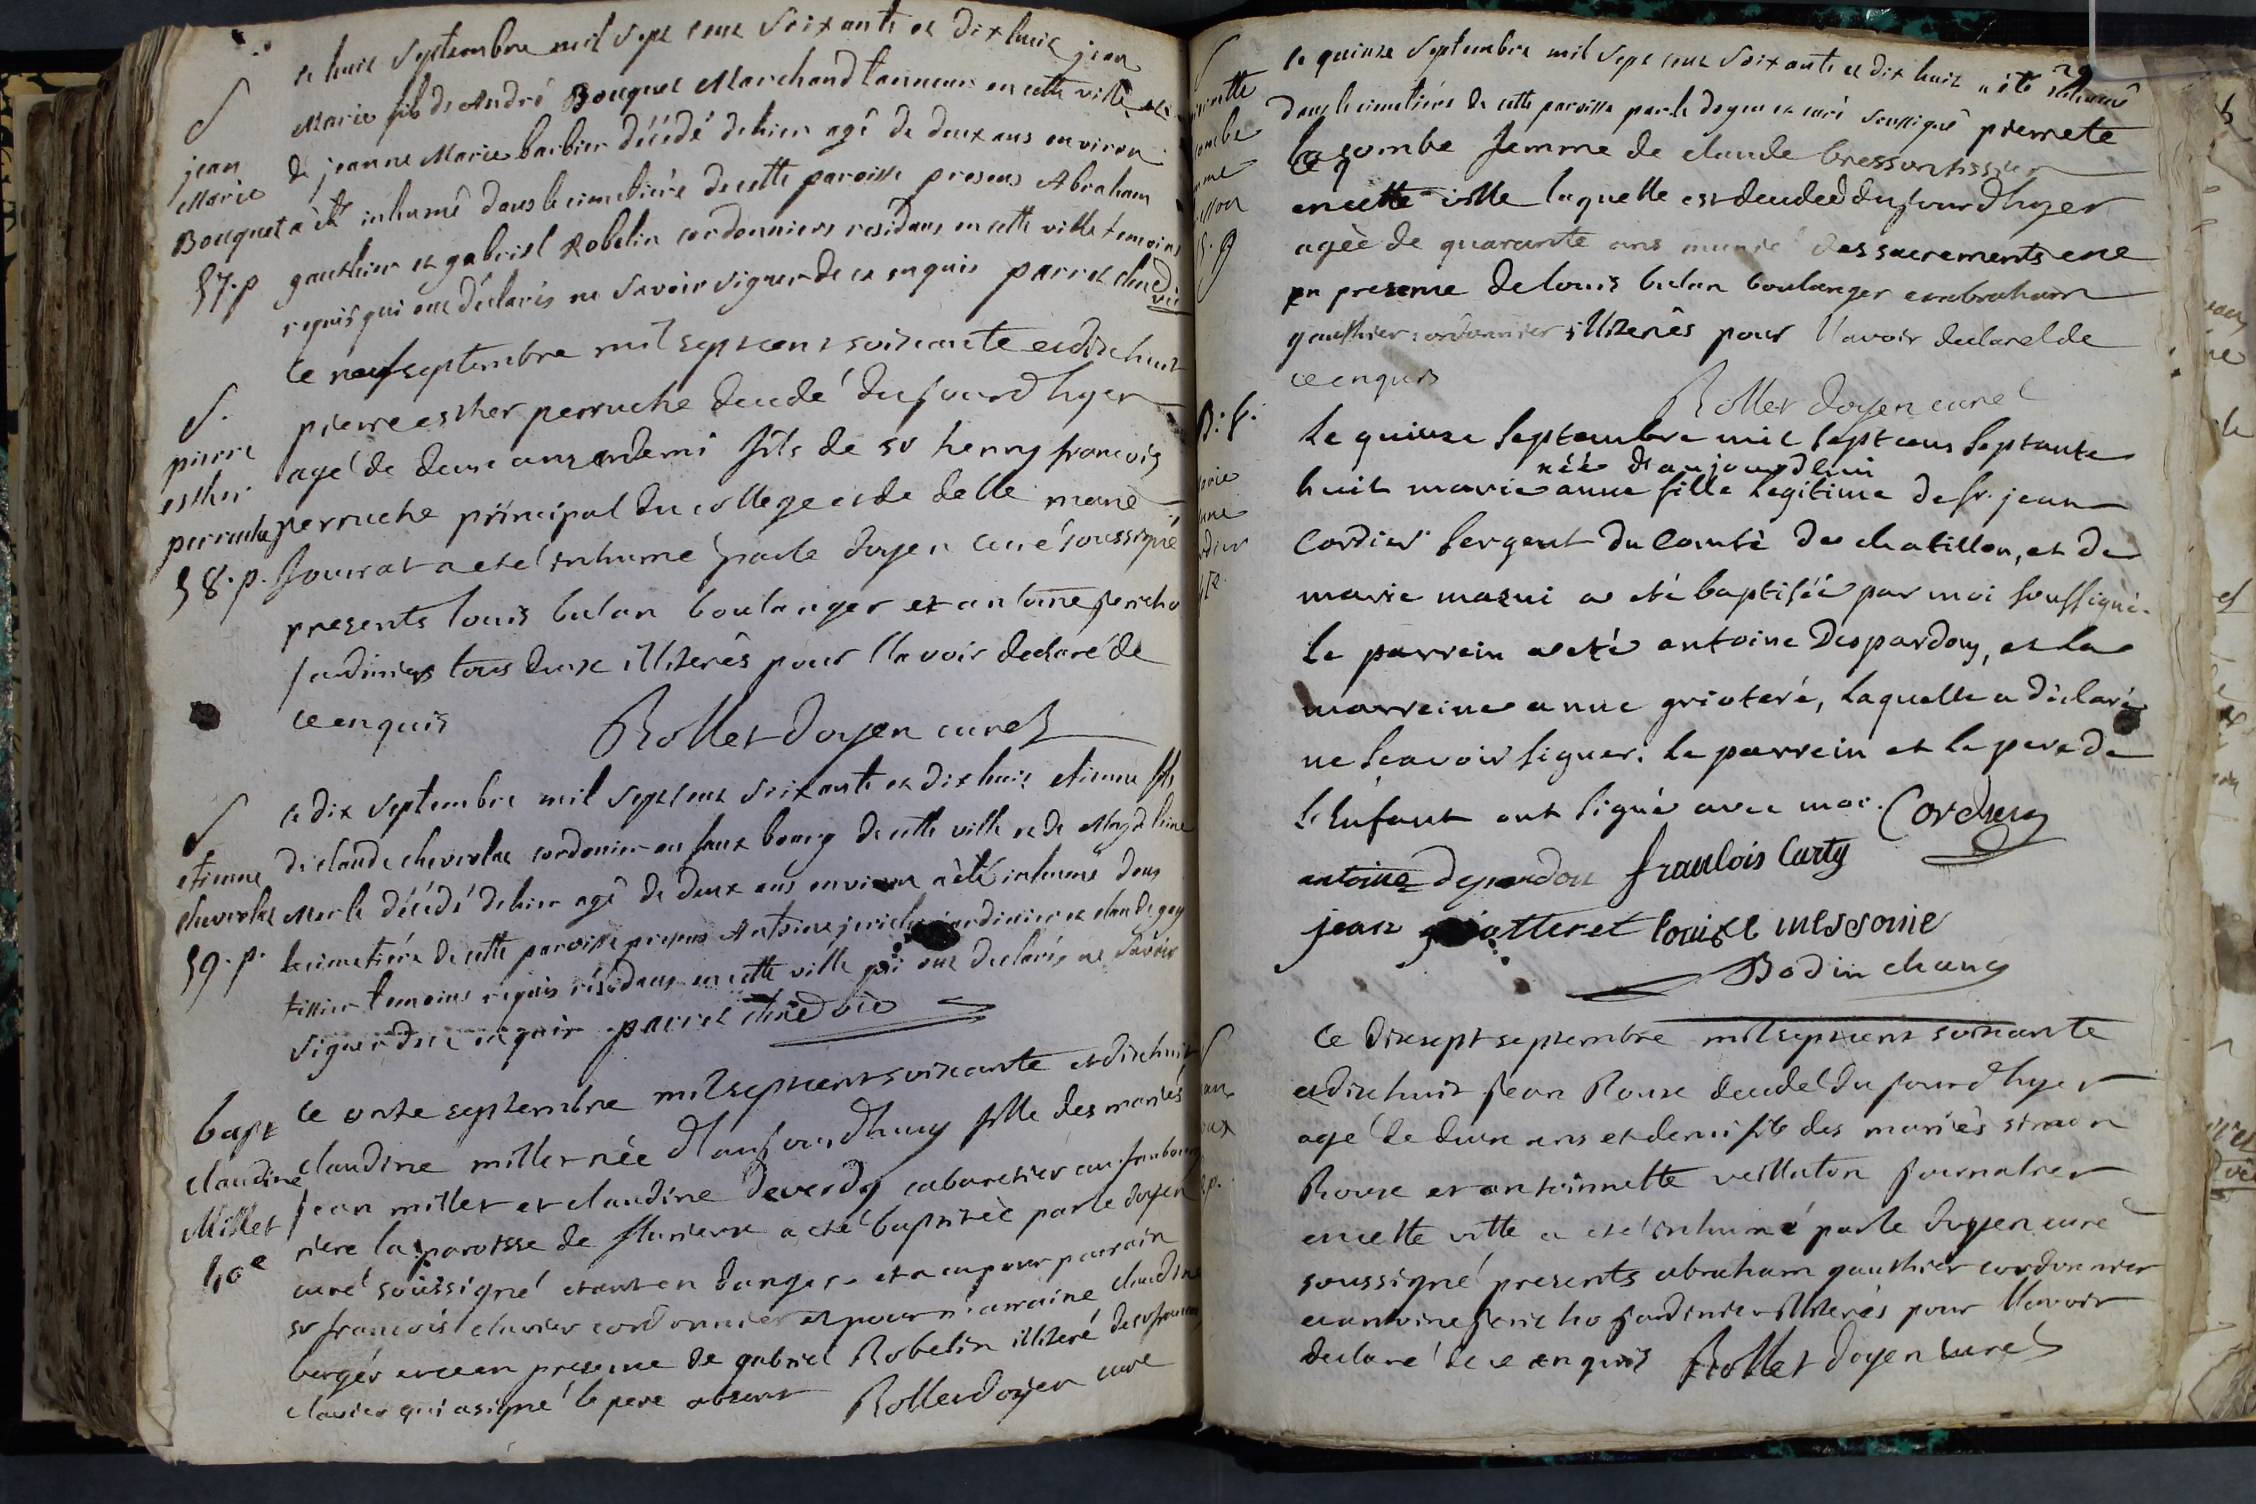 S
jean
Marie
Bouquet
57. p
le huit Septembre mil Sept cent Soixante et dix huit jean
Marie fils de André Bouquet Marchand tanneur en cette ville et
de jeanne Marie barbier décédé de hier agé de deux ans environ
a été inhumé dans le cimetière de cette paroisse presens Abraham
gauthier et gabriel Robelin cordonniers residans en cette ville temoins
requis qui ont déclarés ne Savoir Signer de ce enquis parret
S.
pierre
esther
perruche
58. p.
le neuf septembre mil sept cent soixante et dix huit
pierre esther perruche decedé du jourd hyer
agé de deux ans et demi fils de sr henry francois
perruche principal du college et de delle marie
Jourat a eté inhumé par le doyen curé soussigné
presents louis bulan boulanger et antoine jericho
jardiniers tous deux illiterés pour l'avoir declaré de
ce enquis Rollet doyen curé
S
etienne
chevrolat
59. p.
le dix Septembre mil Sept cent Soixante et dix huit etienne fils
de claude chevrolat cordonier au faux bourg de cette ville et de Magdeleine
Merle décédé de hier agé de deux ans environ a été inhumé dans
le cimetière de cette paroisse presens Antoine jericho jardinier et claude gay
tissier temoins requis résidans en cette ville qui ont declarés ne Savoir
Signer de ce enquis parret
bapt
claudine
Millet
40e
le onze septembre mil sept cent soixante et dix huit
claudine millet née d'aujourdhuy fille des mariés
jean millet et claudine deverdy cabaretier au faubourg
riere la paroisse de a eté baptisée par le doyen
curé soussigné etant en danger et a eu pour parrain
sr francois clavier cordonnier et pour marraine claudine
berger et en presence de gabriel Robelin illiteré de sr francois
clavier qui a signé le pere absent Rollet doyen curé
le quinze Septembre mil Sept cent Soixante et dix huit a été inhumé
dans le cimetière de cette paroisse par le doyen et curé Soussigné pierrete
lacombe femme de claude bresson tissier
en cette ville laquelle est decedeé du jour d hyer
agée de quarante ans munie des sacrements
en presence de louis bulan boulanger et abraham
gauthier cordonnier illiterés pour l'avoir declaré de
ce enquis
Rollet doyen curé
B. f.
le quinze septembre mil sept cens septante
née d'aujourd'hui
huit marie anne fille legitime de sr. jean
Cordier sergent du comté de chatillon, et de
marie mazui a eté baptisée par moi soussigné.
le parrein a eté antoine Despardon, et la
marreine anne grioteré, laquelle a déclaré
ne sçavoir signer. le parrein et le pere de
l'enfant ont signé avec moi. Cordier
antoine depardon francois Carty
jean griotteret louise messonie
Bodin chang
le dix sept septembre mil sept cent soixante
et dix huit jean Roux decedé du jourd hyer
agé de deux ans et demi fils des mariés simon
Roux et antoinette veilleton journalier
en cette ville a eté inhumé par le doyen curé
soussigné presents abraham gauthier cordonnier
et antoine jericho jardinier illiterés pour l'avoir
declaré de ce enquis Rollet doyen curé